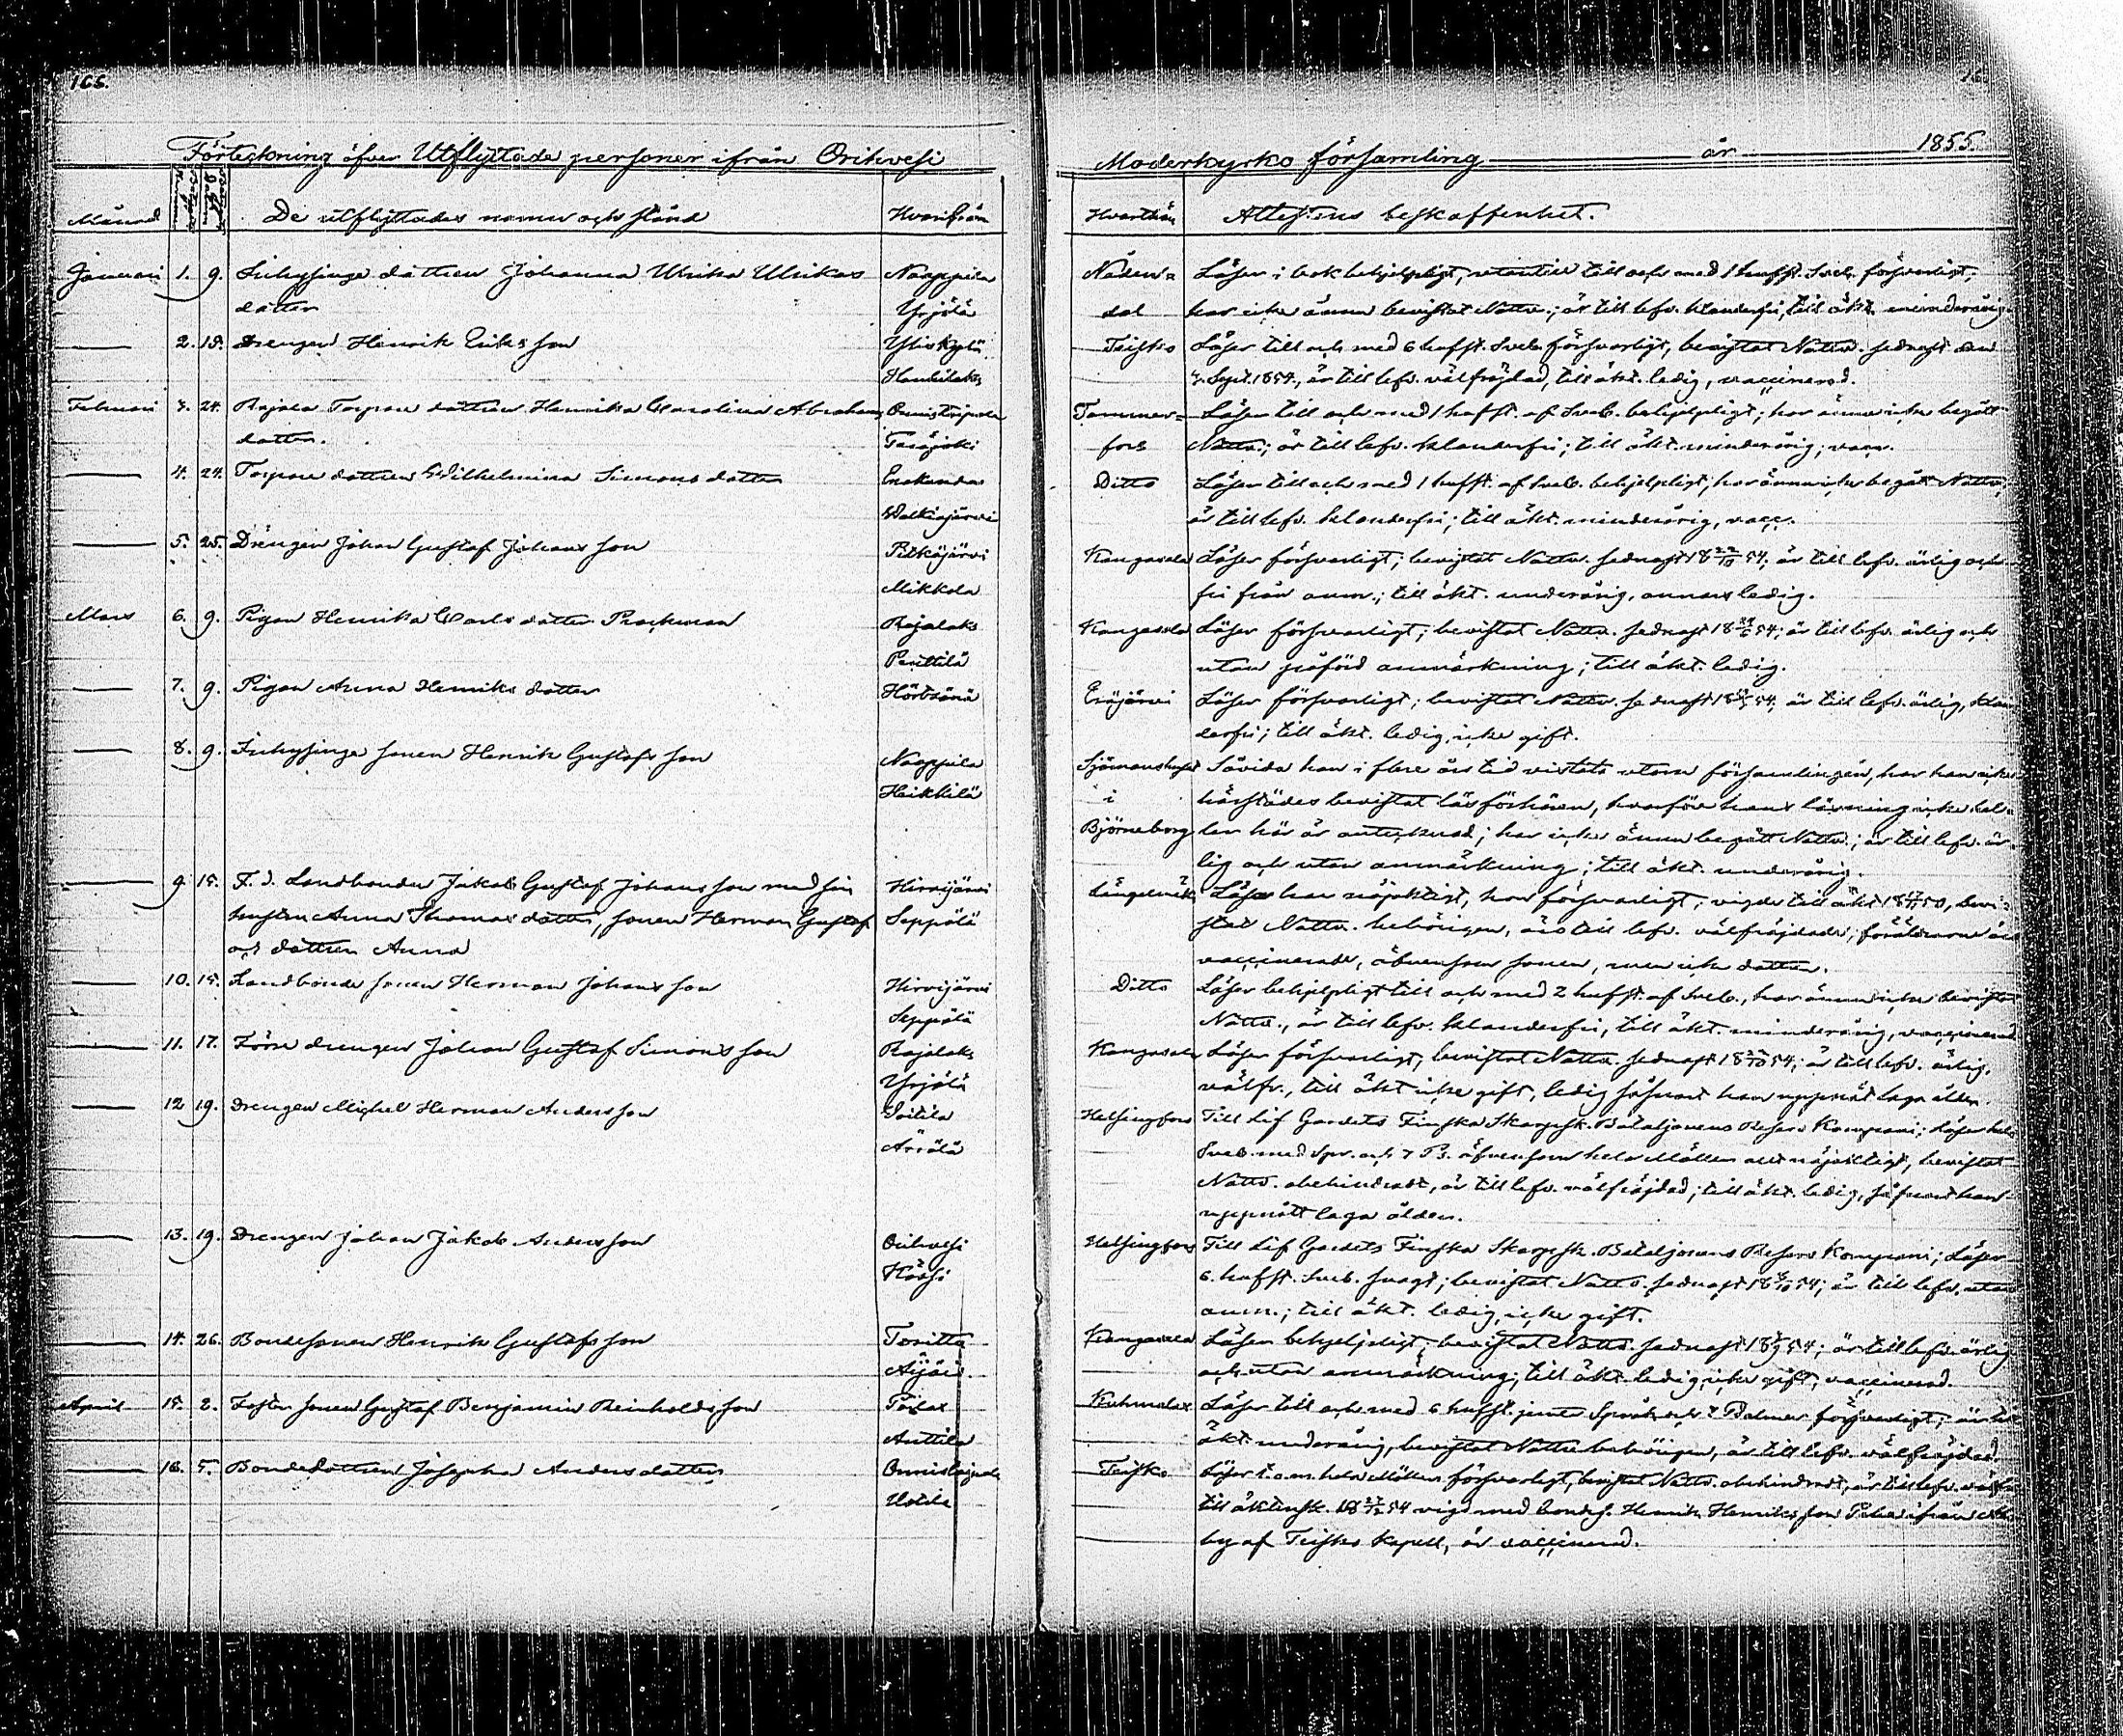 166.
Förteckning öfver Utflyttade personer ifrån Orihvesi
Månad
De utflyttades namn och stånd
Hvarifrån
Januari 1. 9. Inhysinge dottren Johanna Ulrika Ulrikas Naappila
dotter Yrjölä
2. 18. Drengen Henrik Eriks son
Februari 3. 24. Rajala Torpare dottren Henrika Carolina Abrahams Onnistaipale
dotter.
4. 24. Torpare dottren Wilhelmina Simons dotter Enokunda
Walkiajärvi
5. 25. Drengen Johan Gustaf Johans son Pitkäjärvi
Mikkola
Mars 6. 9. Pigan Henrika Carls dotter Rajalaks
Penttilä
7. 9. Pigan Anna Henriks dotter Hörtsänä
8. 9. Inhysinge sonen Henrik Gustafs son Naappila
Heikkilä
9. 15. F. d. Landbonden Jakob Gustaf Johans son med sin Hirvijärvi
hustru Anna Thomas dotter, sonen Herman Gustaf Seppälä
och dottren Anna
10. 15. Landbonde sonen Herman Johans son Hirvijärvi
Seppälä
11. 17. Förre drengen Johan Gustaf Simons son Rajalaks
Yrjölä
12 19. Drengen Michel Herman Anders son Soitila
Arrölä
13. 19. Drengen Johan Jakob Anders son Orihvesi
14. 26. Bondesonen Henrik Gustafs son
Äijälä
April 15. 2. Foster sonen Gustaf Benjamin Reinholds son
Anttila
16. 5. Bondedottren Josepha Anders dotter Onnistaipale
Uotila
Moderkyrko församling år 1855.
Hvarthän Attestens beskaffenhet.
Nåden- Läser i bok behjelpligt, utantill till och med 1 hufst. Sveb. försvarligt;
dal har icke ännu bevistat Nattv.; är till lefv. klanderfri, till äkt. minderårig.
Teisko Läser till och med 6 hufst. Sveb. försvarligt, bevistat Nattv. sednast den
3. Sept. 1854, är till lefv. välfrejdad, till äkt. ledig, vaccinerad.
Tammer- Läser till och med 1 hufst. af Sveb. behjelpligt; har ännu icke begått
fors Nattv.; är till lefv. klanderfri; till äkt. minderårig; vacc.
Ditto Läser till och med 1 hufst. af Sveb. behjelpligt; har ännu icke begått Nattv.
är till lefv. klanderfri; till äkt. minderårig, vacc.
Kangasala Läser försvarligt; bevistat Nattv. sednast 18 22/10 54; är till lefv. ärlig och
fri från anm.; till äkt. underårig, annars ledig.
Kangasala Läser försvarligt; bevistat Nattv. sednast 18 54; är till lefv. ärlig och
utan påförd anmärkning; till äkt. ledig.
Eräjärvi Läser försvarligt; bevistat Nattv. sednast 18 54, är till lefv. ärlig, klan
derfri; till äkt. ledig, icke gift.
Sjömanshuset Såvida han i flere års tid vistats utom församlingen, har han icke
i härstädes bevistat läsförhören, hvarför hans läsning icke hel-
Björneborg ler här är antecknad; har icke ännu begått Nattv.; är till lefv. är-
lig och utan anmärkning; till äkt. underårig.
Längelmäki Läser han nöjaktigt, hon försvarligt; vigde till äkt. 18 50, bevi-
stat Nattv. behörigen, äro till lefv. välfrejdade; föräldrarne äro
vaccinerade, äfvensom sonen, men icke dottren.
Ditto Läser behjelpligt till och med 2 hufst. af Sveb., har ännu icke bevistat
Nattv., är till lefv. klanderfri, till äkt. minderårig, vaccinerad
Kangasala Läser försvarligt, bevistat Nattv. sednast 18 54; är till lefv. ärlig,
välfr., till äkt. icke gift, ledig såsnart han uppnått laga ålder.
Helsingfors Till Lif Gardets Finska Skarpsk. Bataljonens Reserv Kompani; Läser hela
Sveb. med Spr. och 7 Ps. äfvensom hela Möllers nöjaktligt, bevistat
Nattv. obehindradt, är till lefv. välfrejdad; till äkt. ledig, såsnart han
uppnått laga ålder.
Helsingfors Till Lif Gardets Finska Skarpsk. Bataljonens Reserv Kompani; Läser
6. hufst. Sveb. svagt; bevistat Nattv. sednast 18 54; är till lefv. utan
anm.; till äkt. ledig, icke gift.
Kangasala Läser behjelpligt, bevistat Nattv. sednast 18 54; är till lefv. ärlig
och utan anmärkning; till äkt. ledig, icke gift, vaccinerad.
Kuhmalax Läser till och med 6 hufst. jemte Språk och 7 Psalmer försvarligt;
äkt. underårig, bevistat Nattv. behörigen, är till lefv. välfrejdad
Teisko Läser t.o.m. hela Möllers försvarligt, bevistat Nattv. obehindradt, är till lefv.
till äktensk. 18 54 vigd med bondes. Henrik Henriks son ifrån
by af Teisko Kapell, är vaccinerad.